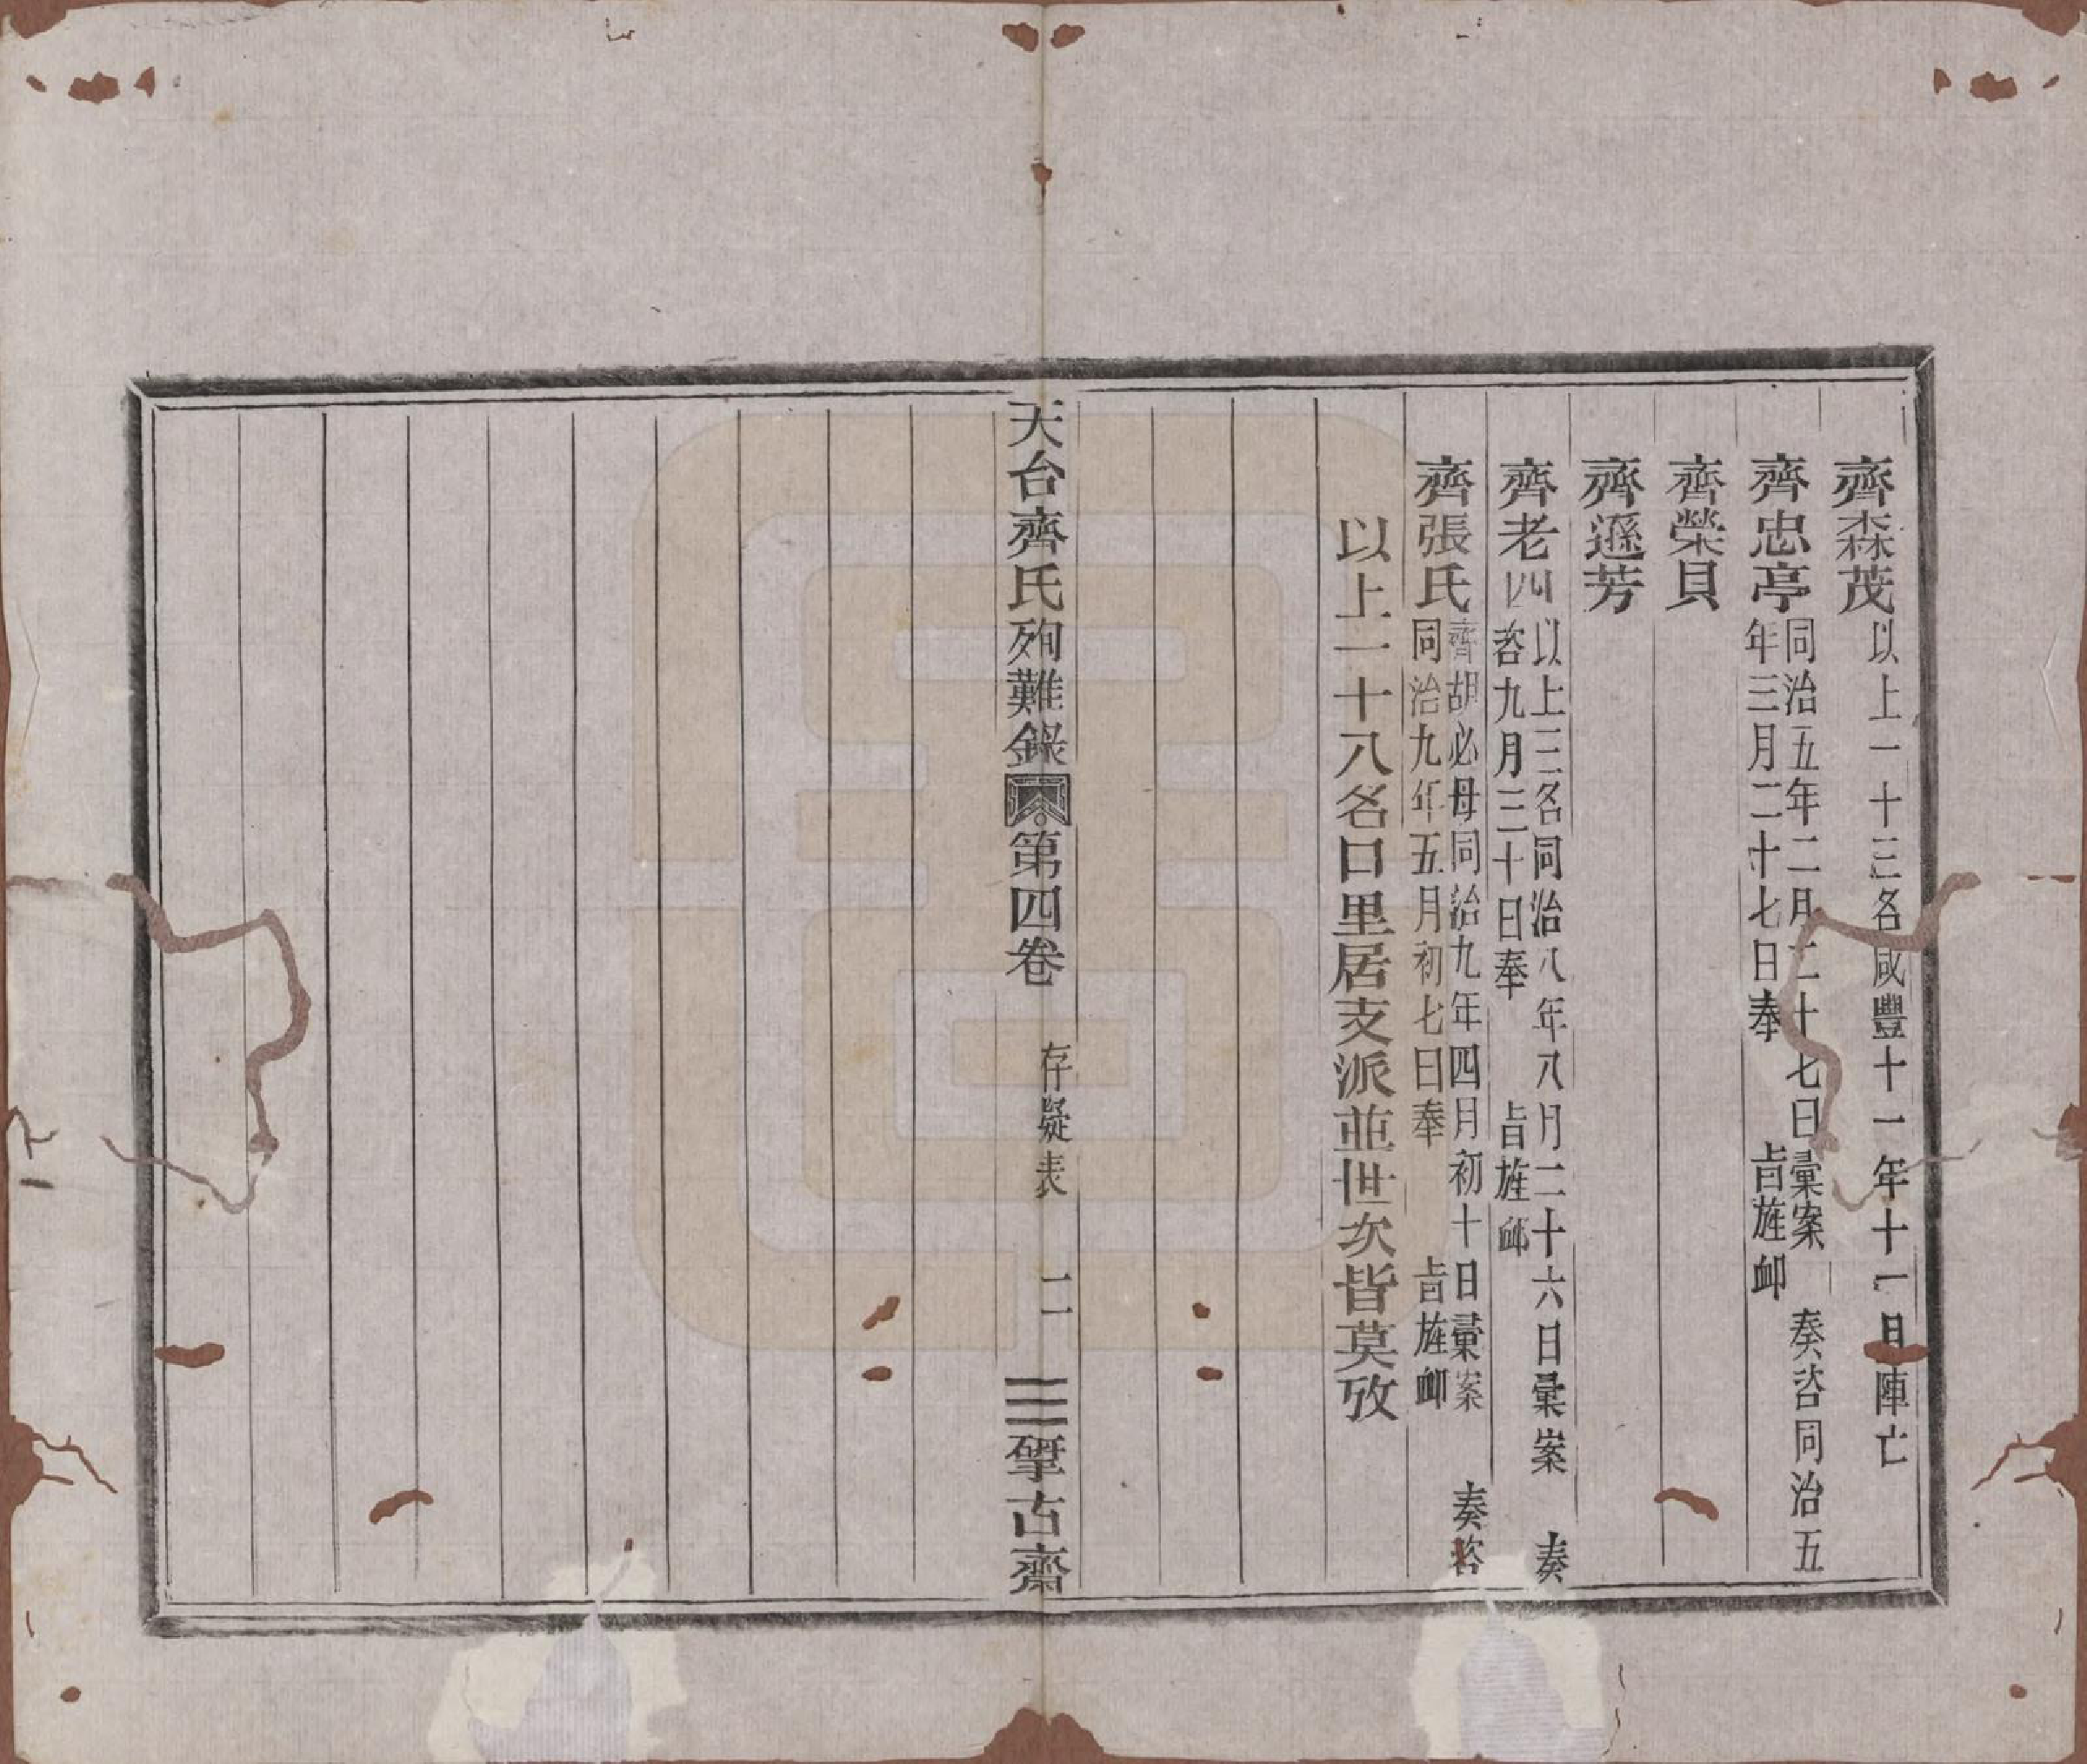 齊森茂以上一十三名咸豐十一年十一月陣亡
齊忠亭同治五年二月二十七日彙案　奏咨同治五
年三月二十七日奉　旨旌卹
齊榮貝
齊遜芳
齊老四以上三名同治八年八月二十六日彙案　奏
咨九月三十日奉　旨旌卹
齊張氏齊胡必母同治九年四月初十日彙案　奏咨
同治九年五月初七日奉　旨旌卹
以上一十八名口里居支派並世次皆莫攷
天台齊氏殉難錄　第四卷　存疑表　二　揅古齋